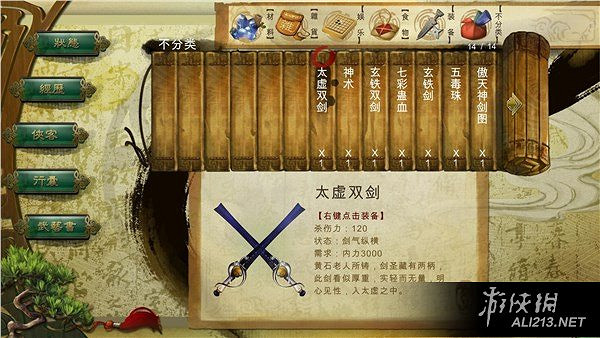 【材料】
【雜貨】
【娱乐】
【食物】
【装备】
【不分类】
14 / 14
不分类
狀態
經歷
俠客
行囊
武藝書
太虚双剑 X1
神术 X1
玄铁双剑 X1
七彩蛊血 X1
玄铁剑 X1
五毒珠 X1
傲天神剑图 X1
太虚双剑
【右键点击装备】
杀伤力：120
状态：剑气纵横
需求：内力3000
黄石老人所铸，剑圣藏有两柄，
此剑看似厚重，实轻而无量，明
心见性，入太虚之中。
游侠网
ALI213.NET